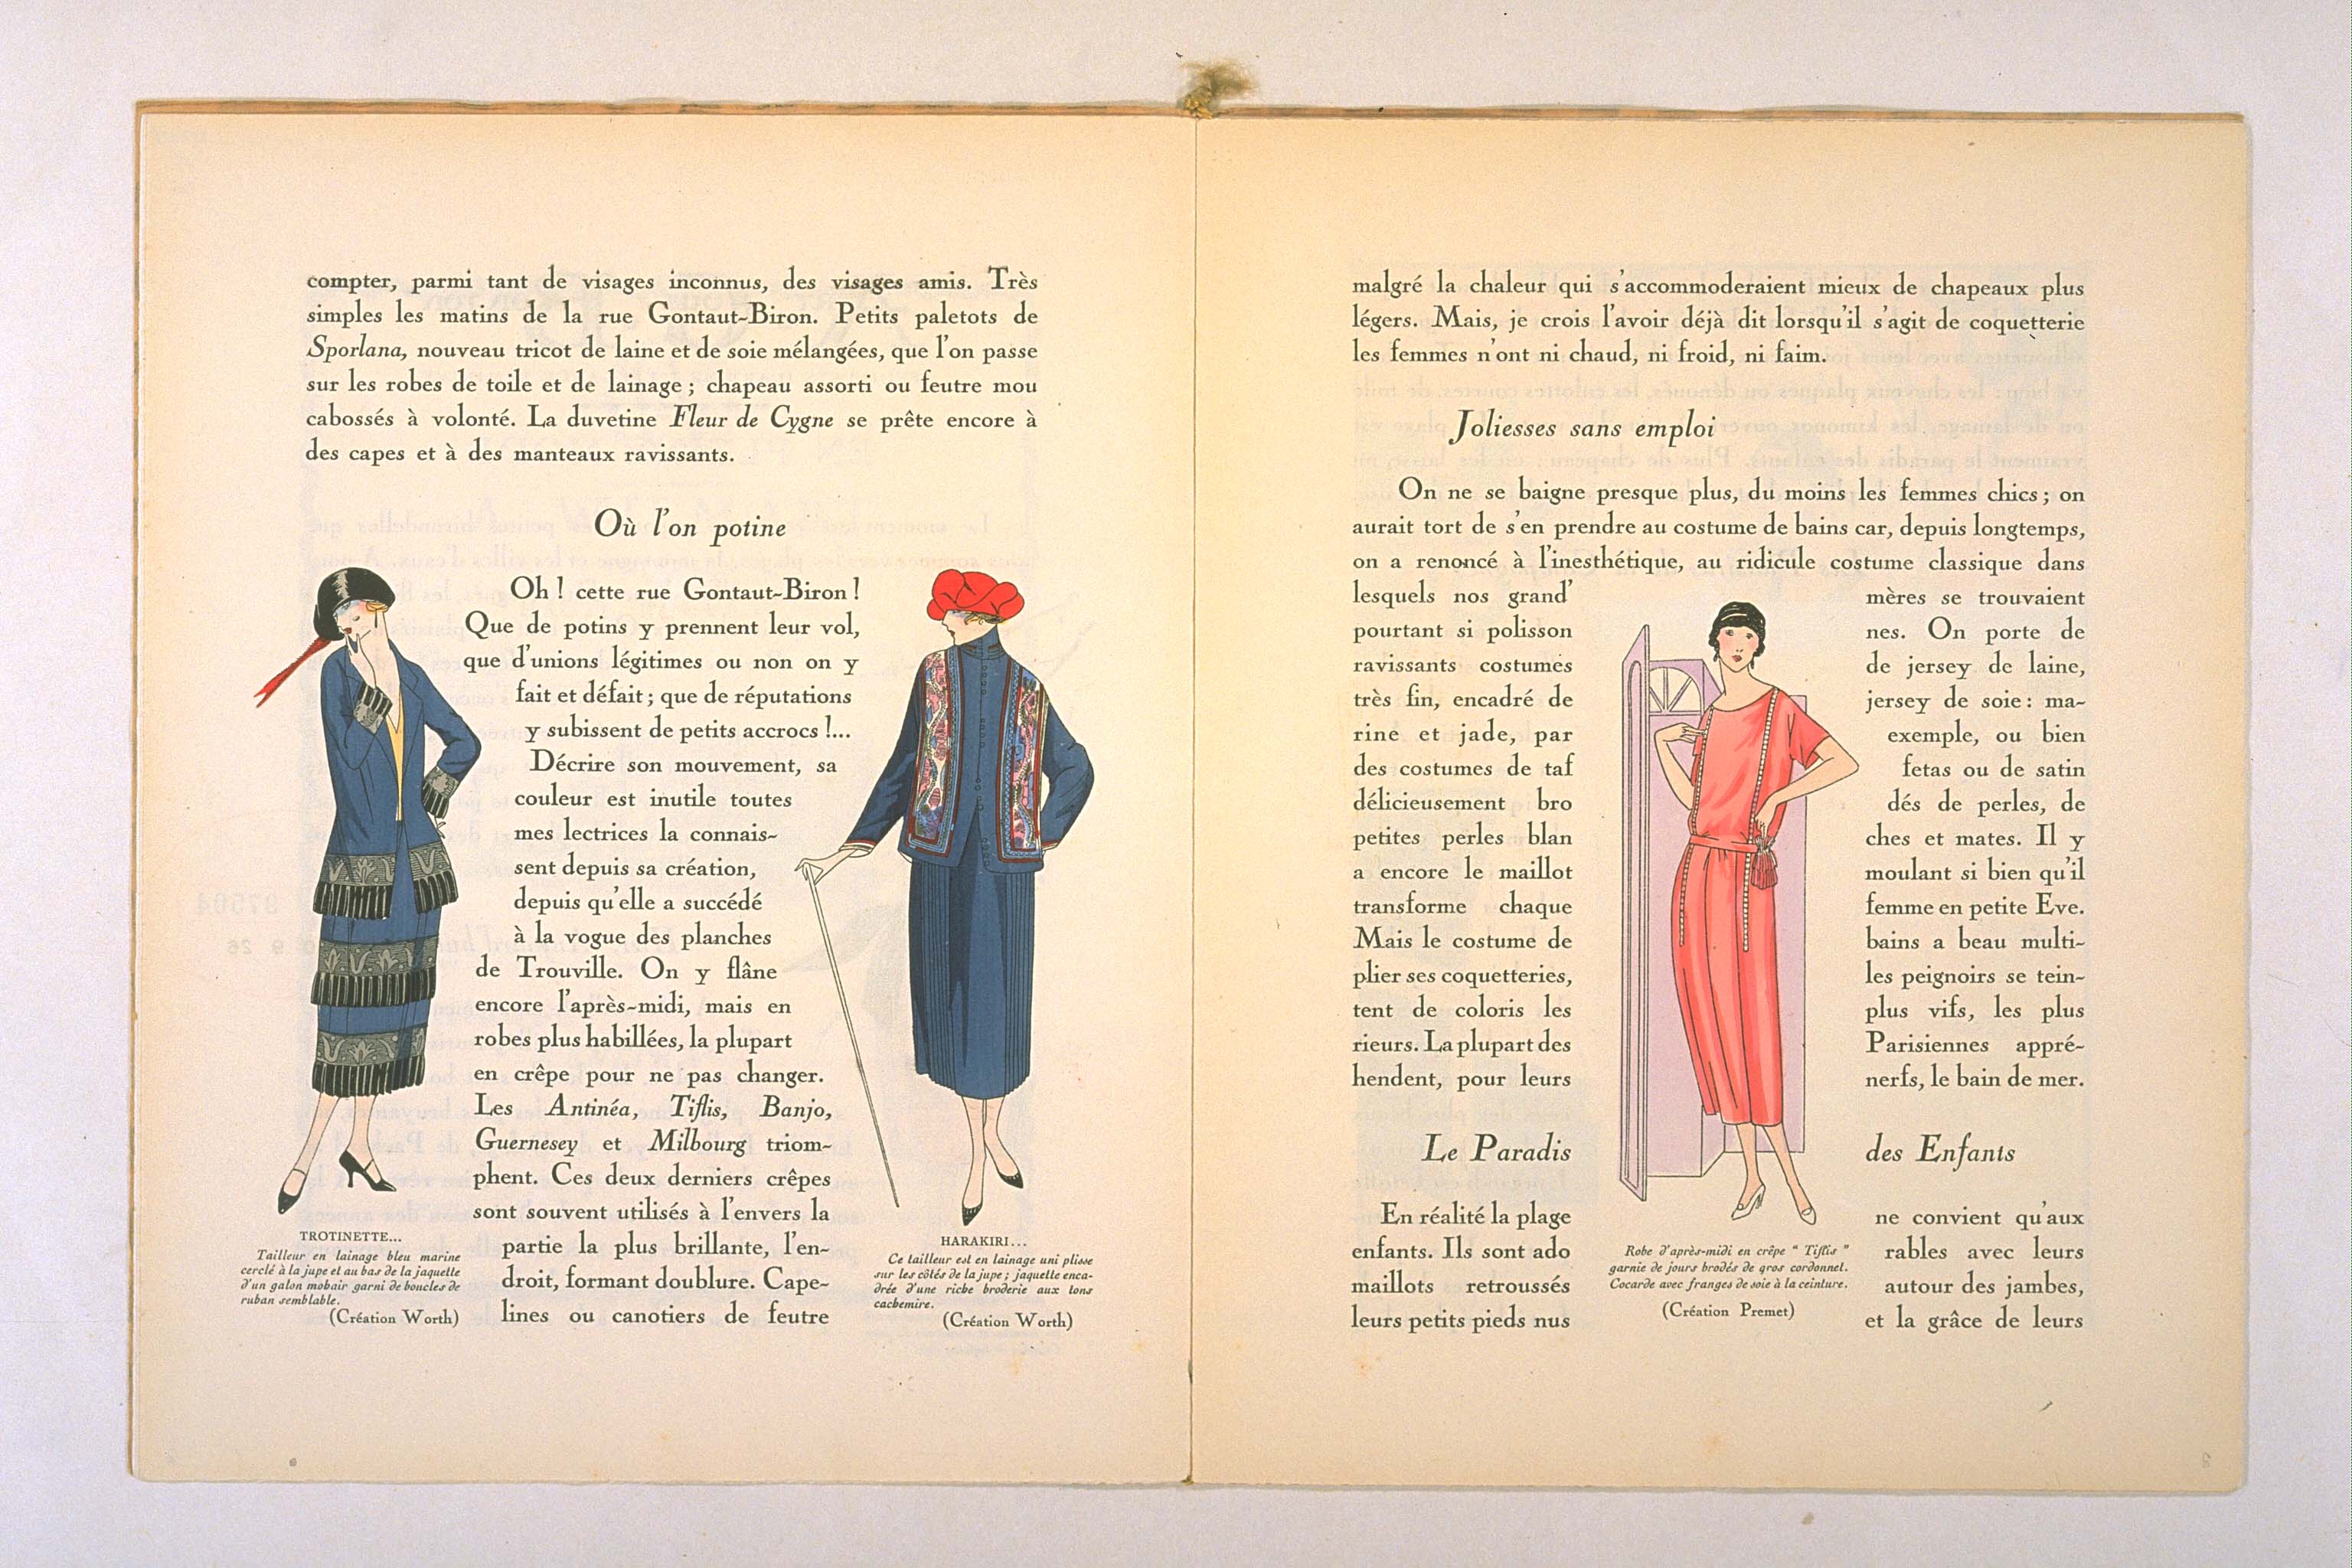 compter, parmi tant de visages inconnus, des visages amis. Très
simples les matins de la rue Gontaut-Biron. Petits paletots de
Sporlana, nouveau tricot de laine et de soie mélangées, que l'on passe
sur les robes de toile et de lainage ; chapeau assorti ou feutre mou
cabossés à volonté. La duvetine Fleur de Cygne se prête encore à
des capes et à des manteaux ravissants.
Où l'on potine
Oh ! cette rue Gontaut-Biron !
Que de potins y prennent leur vol,
que d'unions légitimes ou non on y
fait et défait ; que de réputations
y subissent de petits accrocs !...
Décrire son mouvement, sa
couleur est inutile toutes
mes lectrices la connais-
sent depuis sa création,
depuis qu'elle a succédé
à la vogue des planches
de Trouville. On y flâne
encore l'après-midi, mais en
robes plus habillées, la plupart
en crêpe pour ne pas changer.
Les Antinéa, Tiflis, Banjo,
Guernesey et Milbourg triom-
phent. Ces deux derniers crêpes
sont souvent utilisés à l'envers la
partie la plus brillante, l'en-
droit, formant doublure. Cape-
lines ou canotiers de feutre
TROTINETTE...
Tailleur en lainage bleu marine
cerclé à la jupe et au bas de la jaquette
d'un galon mobair garni de boucles de
ruban semblable.
(Création Worth)
HARAKIRI...
Ce tailleur est en lainage uni plisse
sur les côtés de la jupe ; jaquette enca-
drée d'une riche broderie aux tons
cachemire.
(Création Worth)
malgré la chaleur qui s'accommoderaient mieux de chapeaux plus
légers. Mais, je crois l'avoir déjà dit lorsqu'il s'agit de coquetterie
les femmes n'ont ni chaud, ni froid, ni faim.
Joliesses sans emploi
On ne se baigne presque plus, du moins les femmes chics ; on
aurait tort de s'en prendre au costume de bains car, depuis longtemps,
on a renoncé à l'inesthétique, au ridicule costume classique dans
lesquels nos grand' mères se trouvaient
pourtant si polisson nes. On porte de
ravissants costumes de jersey de laine,
très fin, encadré de jersey de soie : ma-
rine et jade, par exemple, ou bien
des costumes de taf fetas ou de satin
délicieusement bro dés de perles, de
petites perles blan ches et mates. Il y
a encore le maillot moulant si bien qu'il
transforme chaque femme en petite Eve.
Mais le costume de bains a beau multi-
plier ses coquetteries, les peignoirs se tein-
tent de coloris les plus vifs, les plus
rieurs. La plupart des Parisiennes appré-
hendent, pour leurs nerfs, le bain de mer.
Le Paradis des Enfants
En réalité la plage ne convient qu'aux
enfants. Ils sont ado rables avec leurs
maillots retroussés autour des jambes,
leurs petits pieds nus et la grâce de leurs
Robe d'après-midi en crêpe " Tiflis "
garnie de jours brodés de gros cordonnet.
Cocarde avec franges de soie à la ceinture.
(Création Premet)